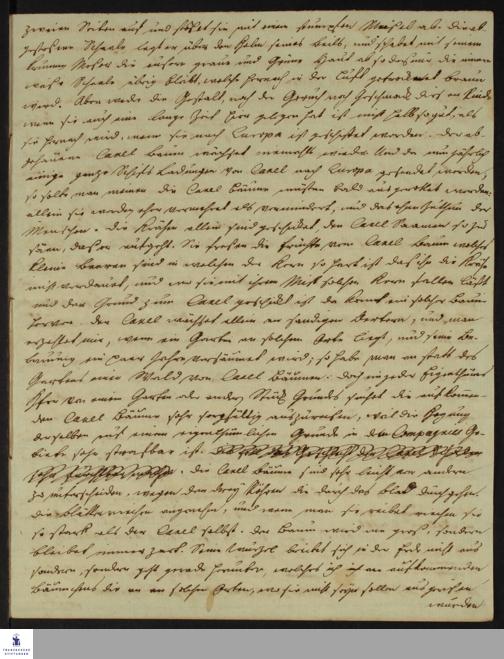 zweien Seiten auf und stößt sie mit einem stumpfen Meißel ab. Die ab-
gestoßene Schaale legt er über den Helm seines Beils, und schabet mit seinem
krummen Messer die äusere graue und Grüne Haut ab so daß nur die innere
Schaale übrig bleibt, welche hernach in der Luft getrocknet braun
wird. Aber weder die Gestalt, noch der Geruch noch Geschmack dieser Rinde
wenn sie auch eine lange Zeit hier gelegen hat ist nicht halb so gut, als
sie hernach wird, wenn sie nach Europa ist geschaffet worden. Der ab-
Canell Baum wächset wieder. Und da nun jährlich
einige ganze Schiffs Ladungen von Canell nach Europa gesendet werden,
so solte man meinen die Canel Bäume müsten bald ausgerottet werden,
allein sie werden eher vermehret als vermindert, und das ohne Zuthun der
Menschen. Die Krähen allein sind geschickt, den Canell Saamen so zu
säen, daß er aufgeht. Sie freßen die Früchte vom Canell Baum welches
kleine Beeren sind in welchen der Kern so hart ist daß ihn die Krähe
nicht verdauet, und wo sie mit ihrem Mist solchen Kern fallen läßt
und der Grund zum Canell geschickt ist da kommt ein solcher Baum
hervor. Der Canell wächset allein an sandigen Oertern, und man
erzehlet mir, wenn ein Garten an solchem Orte liegt, und seine Be-
bauung ein paar Jahre versäumet wird; so habe man an statt des
Gartens einen Wald von Canell Bäumen. Doch ein jeder Eigenthümer
von einem Garten oder ander Stück Grundes suchet die aufkomen-
den Canell Bäume sehr sorgfältig auszureißen, weil die
derselben auf einem eigenthümlichen Grunde in der Compagnies Ge-
biete sehr strafbar ist.
Die Canell Bäume sind sehr leicht von andern
zu unterscheiden, wegen der drey die durch das blad durchgehen.
Die blätter riechen angenehm, und wenn man sie reibet riechen sie
so stark als der Canell selbst. Der Baum wird nie groß, sondern
bleibet immer zart. Seine Wurzel breitet sich in der Erde nicht aus
sondern, sondern geht gerade herunter, welches ich an aufkommenden
Bäumchens die an an solchen Orten, wo sie nicht seyn sollen ausgerißen
wurden
TRANSCRIPT